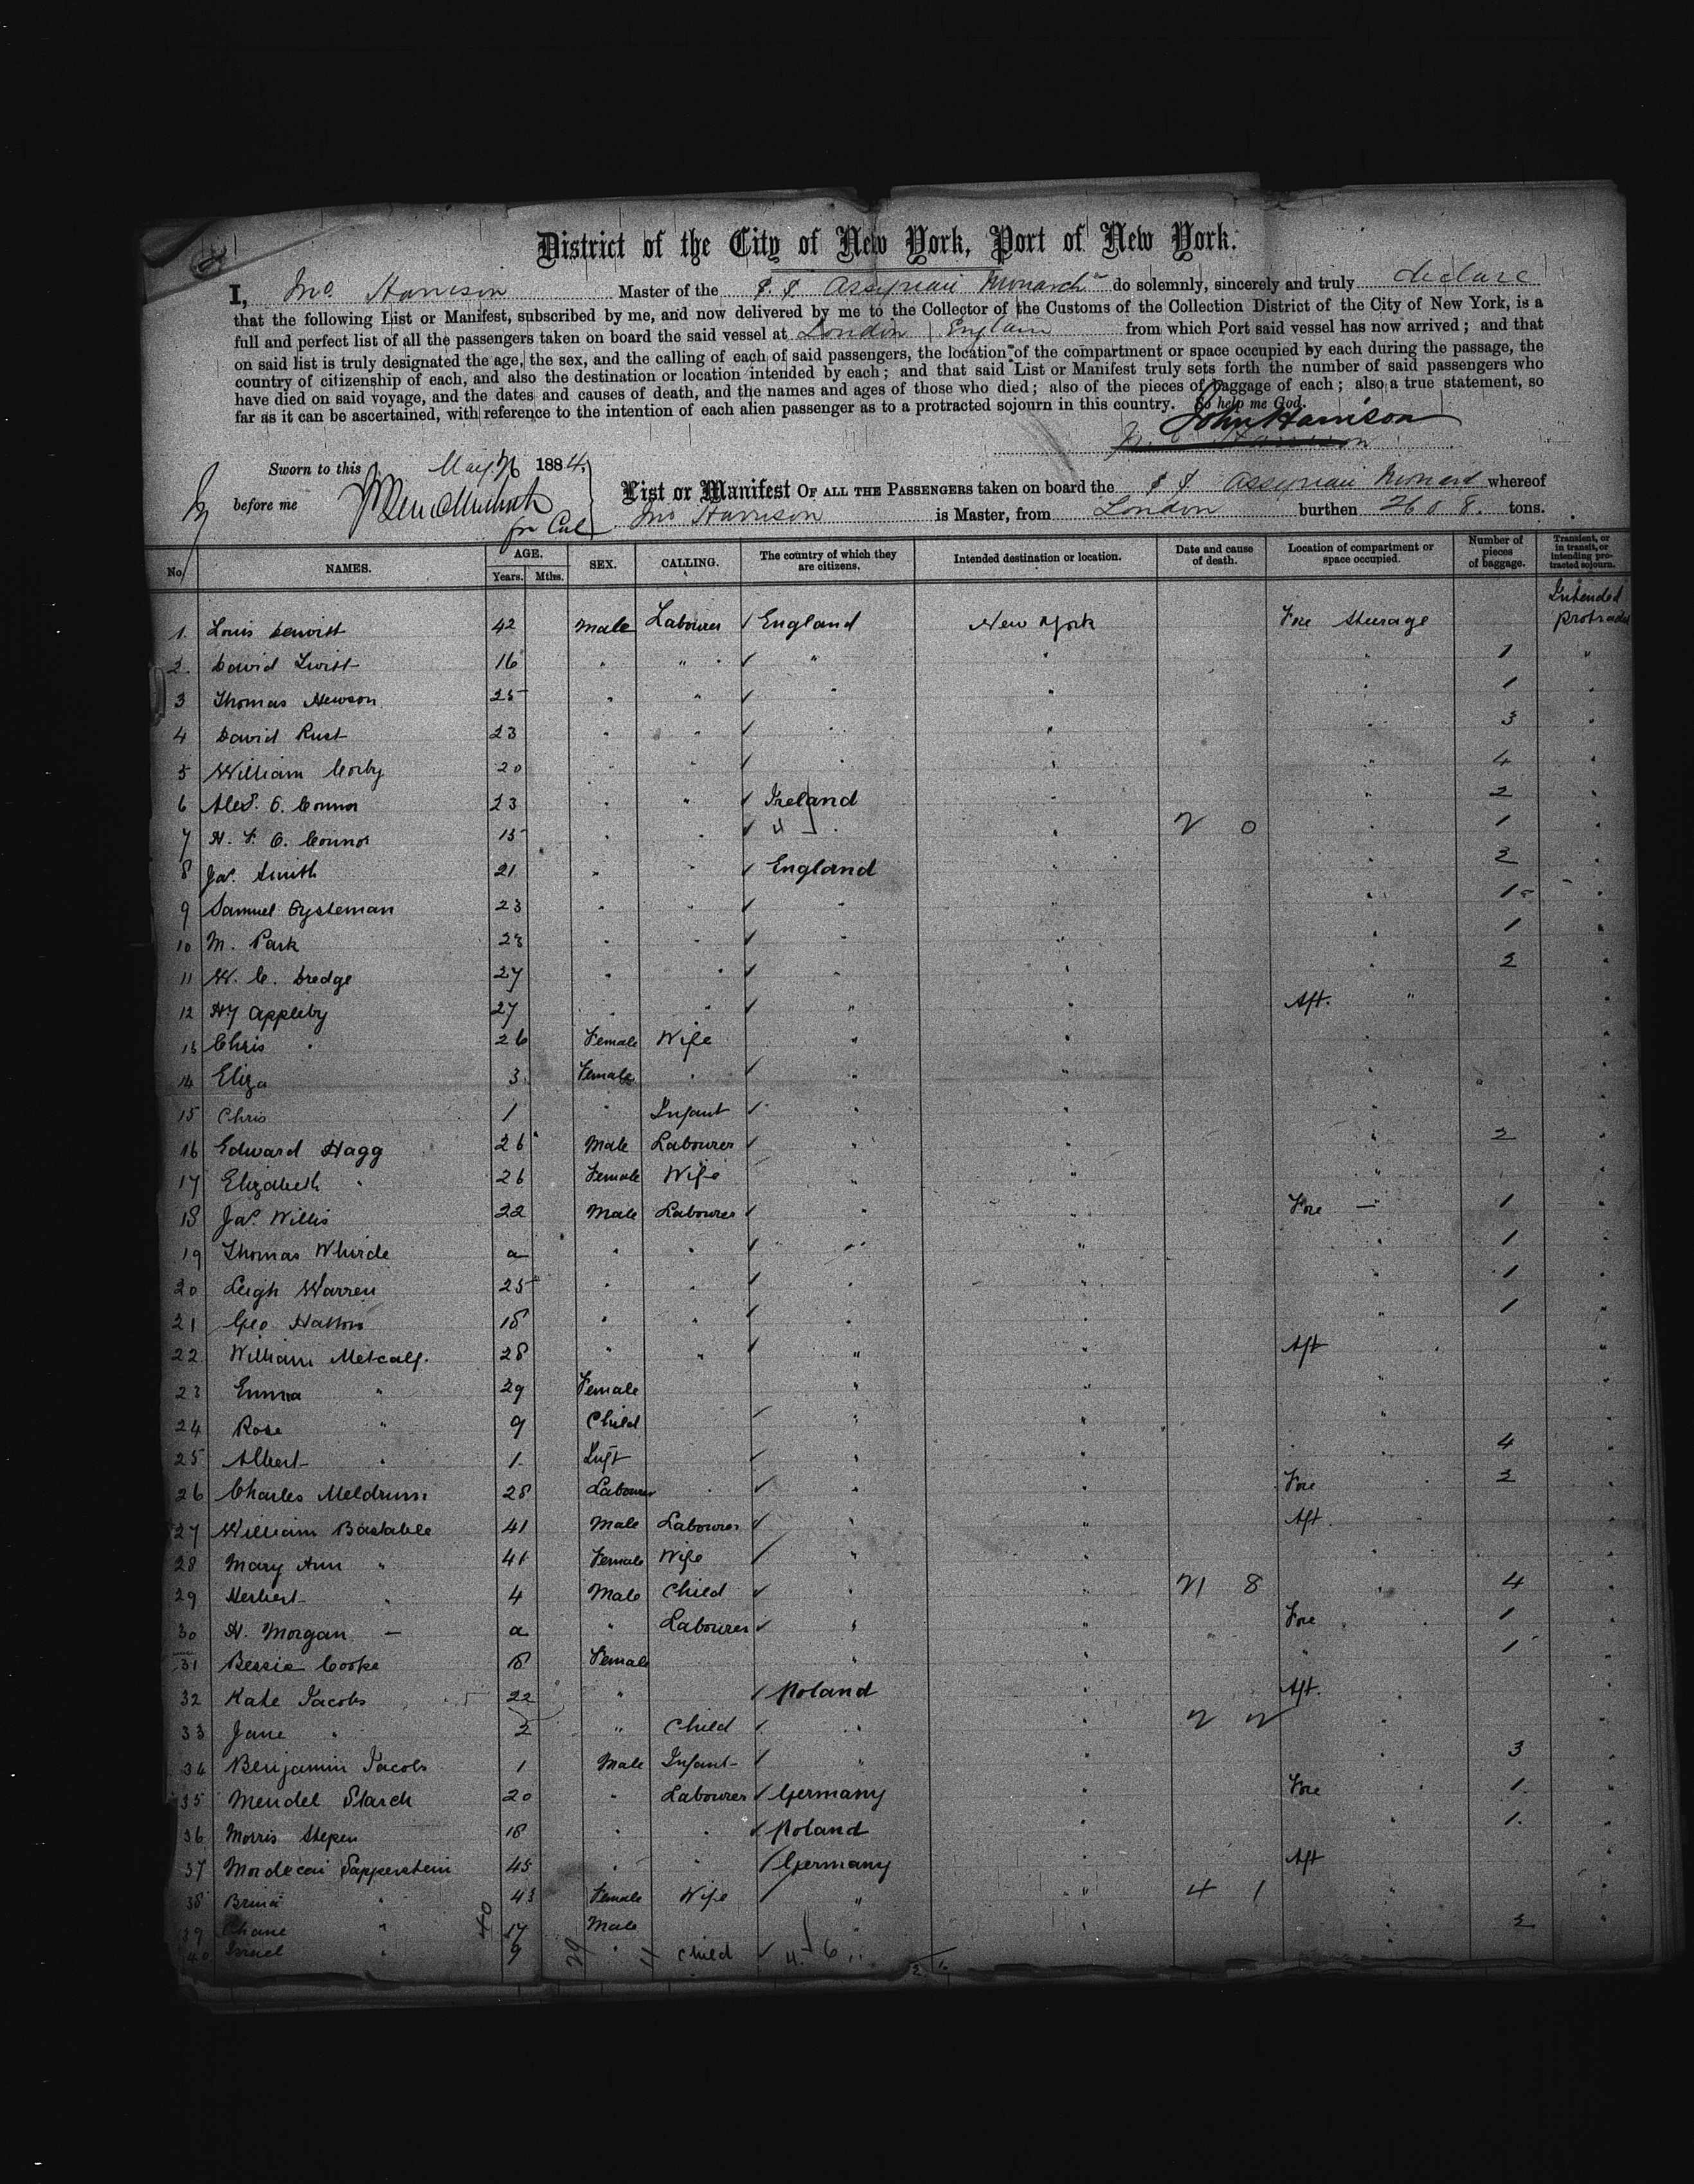 District of the City of New York, Port of New York.
I, Jno. Harrison Master of the S. S. Assyrian Monarch do solemnly, sincerely and truly declare
that the following List or Manifest, subscribed by me, and now delivered by me to the Collector of the Customs of the Collection District of the City of New York, is a
full and perfect list of all the passengers taken on board the said vessel at London England from which Port said vessel has now arrived; and that
on said list is truly designated the age, the sex, and the calling of each of said passengers, the location of the compartment or space occupied by each during the passage, the
country of citizenship of each, and also the destination or location intended by each; and that said List or Manifest truly sets forth the number of said passengers who
have died on said voyage, and the dates and causes of death, and the names and ages of those who died; also of the pieces of baggage of each; also a true statement, so
far as it can be ascertained, with reference to the intention of each alien passenger as to a protracted sojourn in this country. So help me God.
John Harrison
Sworn to this May 1884
before me
List or Manifest OF ALL THE PASSENGERS taken on board the S. S. Assyrian Monarch whereof
Jno Harrison is Master, from London burthen 2608. tons.
No. NAMES. AGE. Years. Mths. SEX. CALLING. The country of which they are citizens. Intended destination or location. Date and cause of death. Location of compartment or space occupied. Number of pieces of baggage. Transient, or in transit, or intending protracted sojourn.
1. Louis 42 Male Labourer England New York Fore Steerage Intended Protracted
2. David 16 " " " " " 1 "
3 Thomas Newson 25 " " " " " 1 "
4 David Rust 23 " " " " " 3 "
5 William Corby 20 " " " " " 4 "
6 Alex. O. Connor 23 " " Ireland " " 2 "
7 H. F. O. Connor 15 " " " " " 1 "
8 Jas. Smith 21 " " England " " 2 "
9 Samuel Oysteman 23 " " " " " 1 "
10 M. Park 23 " " " " " 1 "
11 W. C. Dredge 27 " " " " " 2 "
12 Hy Appleby 27 " " " " Aft. " "
13 Chris " 26 Female Wife " " " "
14 Eliza 3 Female " " " " "
15 Chris 1 " Infant " " " "
16 Edward Hagg 26 Male Labourer " " " 2 "
17 Elizabeth " 26 Female Wife " " " "
18 Jas. Willis 22 Male Labourer " " Fore " 1 "
19 Thomas a " " " " " 1 "
20 Leigh Warren 25 " " " " " 1 "
21 Geo Hatton 18 " " " " " 1 "
22 William Metcalf. 28 " " " " Aft " "
23 Emma " 29 Female " " " "
24 Rose " 9 Child " " " "
25 Albert " 1 Inft " " " 4 "
26 Charles Meldrum 28 Labourer " " " Fore " 2 "
27 William Bastable 41 Male Labourer " " Aft. " "
28 Mary Ann " 41 Female Wife " " " "
29 Herbert " 4 Male Child " " " 4 "
30 H. Morgan a " Labourer " " Fore " 1 "
31 Bessie Cooke 18 Female " " " 1 "
32 Kate Jacobs 22 " Poland " Aft. " "
33 Jane " 2 " Child " " " "
34 Benjamin Jacobs 1 Male Infant " " " 3 "
35 Mendel Starch 20 " Labourer Germany " Fore " 1 "
36 Morris 18 " " Poland " " 1. "
37 Mordecai Sapperstein 45 " " Germany " Aft "
38 " 43 Female Wife " " " "
39 Chane " 17 Male " " " 2 "
40 Israel " 9 " Child " "